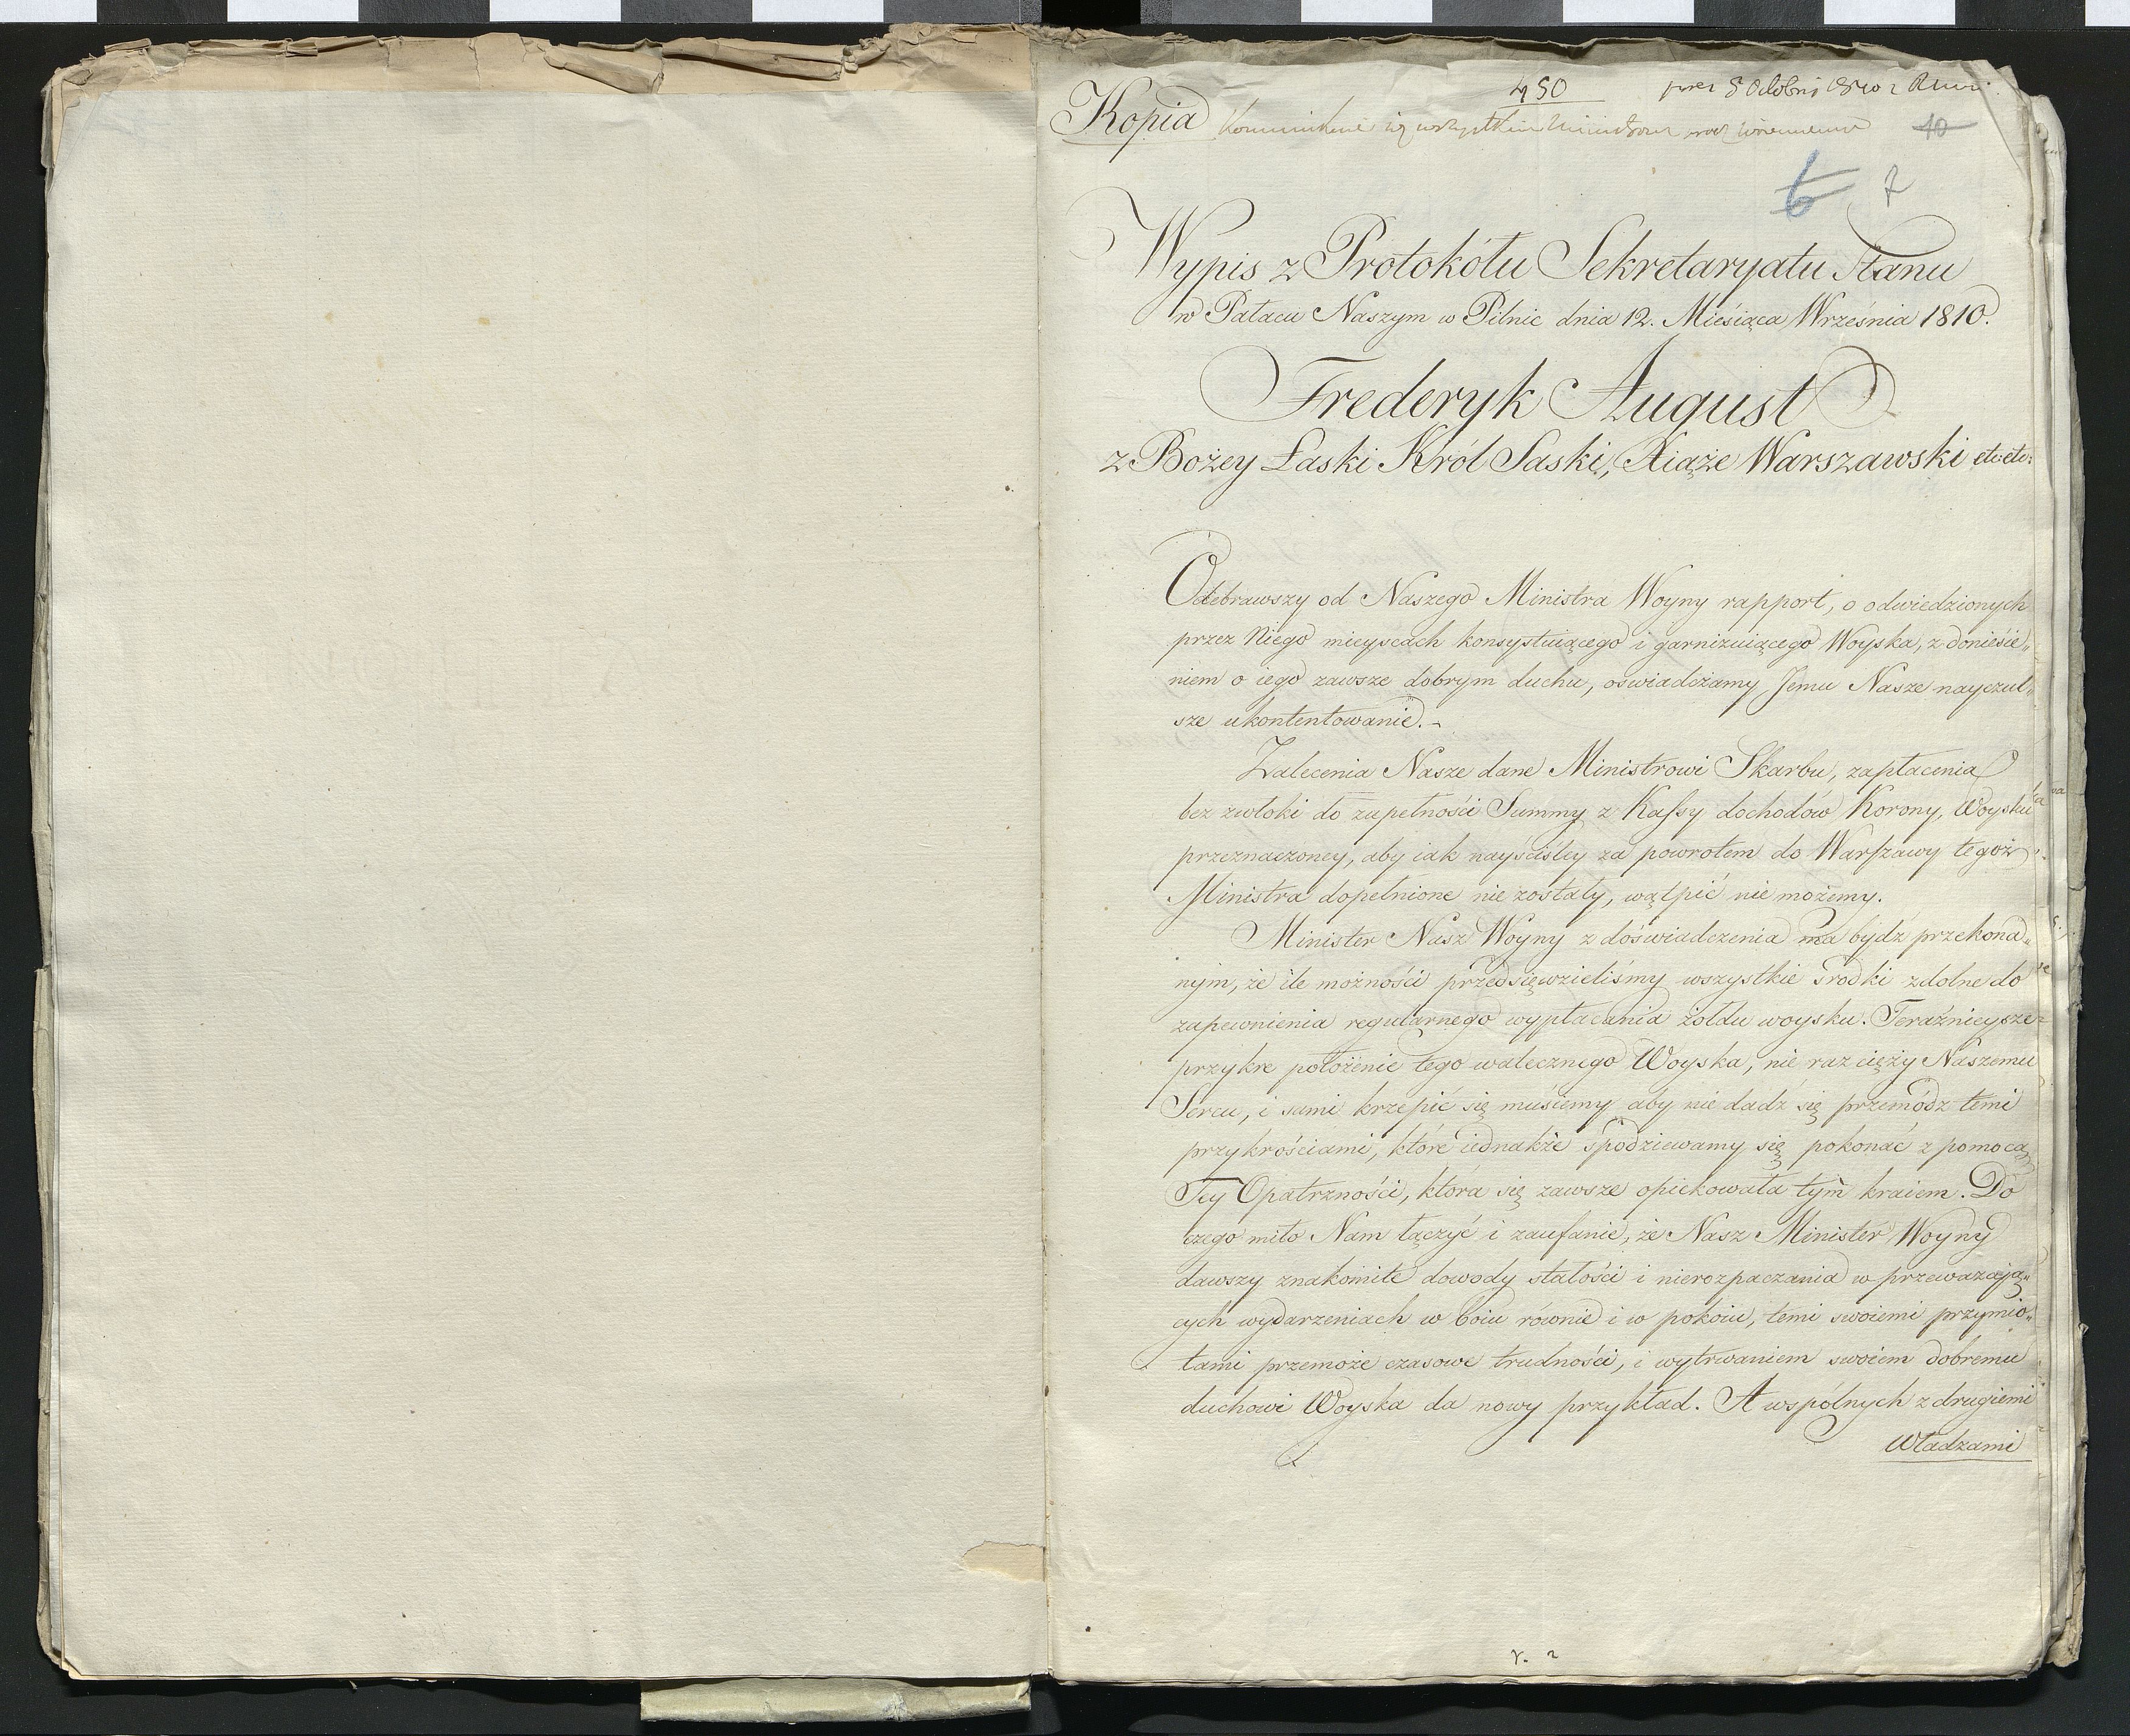 450
Kopia
10
6 7
Wypis z Protokółu Sekretaryatu Stanu
w Pałacu Naszym w Pilnic dnia 12. Miesiąca Września 1810.
Frederyk August
z Bożey Łaski Król Saski, Xiąże Warszawski etc: etc:
Odebrawszy od Naszego Ministra Woyny rapport, o odwiedzionych
przez Niego mieyscach konsystuiącego i garnizuiącego Woyska, z doniesie„
niem o iego zawsze dobrym duchu, oświadczamy Jemu Nasze nayczul„
sze ukontentowanie.-
Zalecenia Nasze dane Ministrowi Skarbu, zapłacenia
bez zwłoki do zupełności Summy z Kassy dochodów Korony, Woysku
przeznaczoney, aby iak nayściśley za powrotem do Warszawy tegoż
Ministra dopełnione nie zostały, wątpić nie możemy.
Minister Nasz Woyny z doświadczenia ma bydź przekona„
nym, że ile możności przedsięwzieliśmy wszystkie środki zdolne do
zapewnienia regularnego wypłacania żołdu woysku. Teraźnieysze
przykre położenie tego walecznego Woyska, nie raz cięży Naszemu
Sercu, i sami krzepić się musiemy aby nie dadź się przemódz temi
przykrościami, które iednakże spodziewamy się pokonać z pomocą
Tey Opatrzności, która się zawsze opiekowała tym kraiem. Do
czego miło Nam łączyć i zaufanie, że Nasz Minister Woyny
dawszy znakomite dowody stałości i nierozpaczania w przeważaią„
cych wydarzeniach w boiu równie i w pokoiu, temi swoiemi przymio„
tami przemoże czasowe trudności, i wytrwaniem swoiem dobremu
duchowi Woyska da nowy przykład. A wspólnych z drugiemi
Władzami